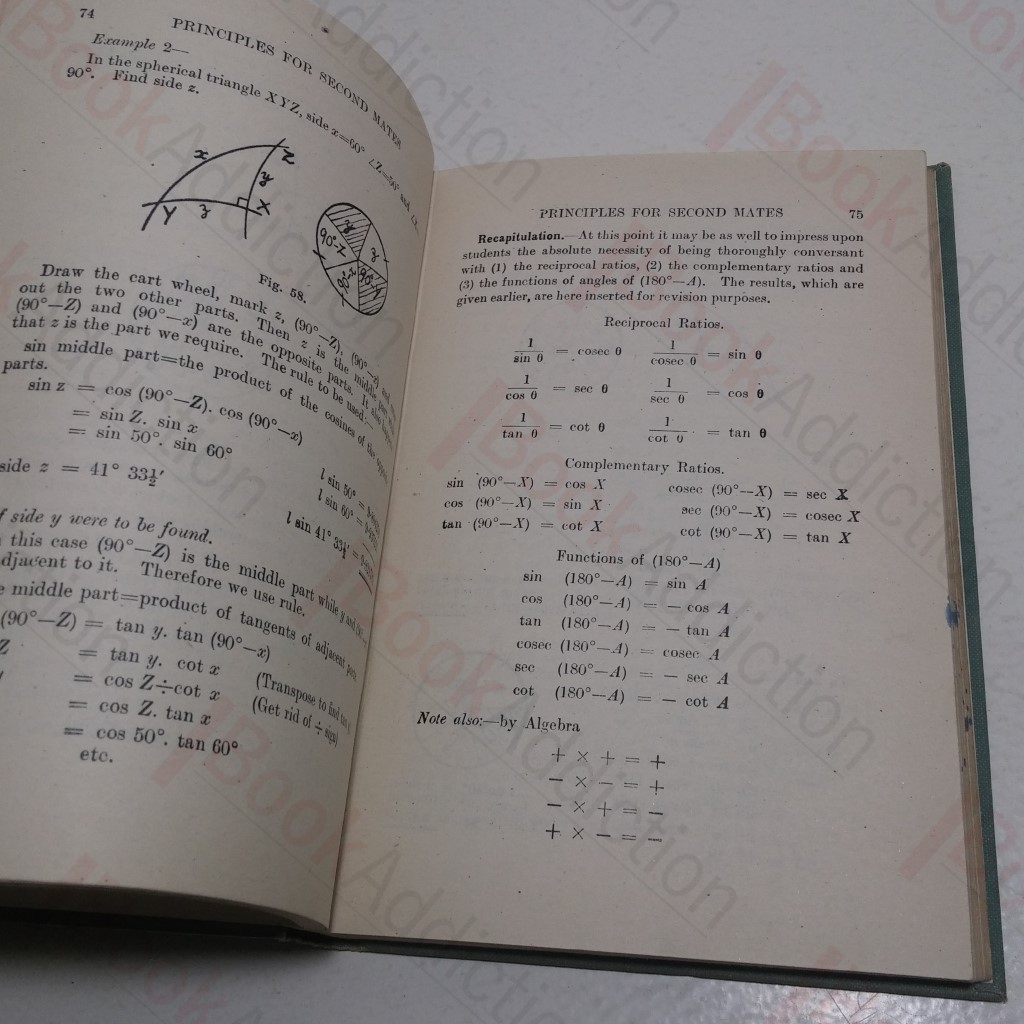 74
PRINCIPLES FOR SECOND MATES
Example 2—
In the spherical triangle XYZ, side x=60° ∠Z=50° and
90°. Find side z.
x
Z
y
Y
z
X
90°-Z
Fig. 58.
Draw the cart wheel, mark z, (90°—Z), (90°—x) and
out the two other parts. Then z is the middle part
(90°—Z) and (90°—x) are the opposite parts. It
that z is the part we require. The rule to be used:—
sin middle part=the product of the cosines of the
parts.
sin z = cos (90°—Z). cos (90°—x)
= sin Z. sin x
= sin 50°. sin 60°
l sin 50° =
l sin 60° =
side z = 41° 33½′
l sin 41° 33½′ =
side y were to be found.
this case (90°—Z) is the middle part while y and
adjacent to it. Therefore we use rule.
middle part=product of tangents of adjacent parts
(90°—Z) = tan y. tan (90°—x)
= tan y. cot x
(Transpose to find
= cos Z÷cot x
(Get rid of ÷ sign)
= cos Z. tan x
= cos 50°. tan 60°
etc.
PRINCIPLES FOR SECOND MATES 75
Recapitulation.—At this point it may be as well to impress upon
students the absolute necessity of being thoroughly conversant
with (1) the reciprocal ratios, (2) the complementary ratios and
(3) the functions of angles of (180°—A). The results, which are
given earlier, are here inserted for revision purposes.
Reciprocal Ratios.
1/sin θ = cosec θ 1/cosec θ = sin θ
1/cos θ = sec θ 1/sec θ = cos θ
1/tan θ = cot θ 1/cot θ = tan θ
Complementary Ratios.
sin (90°—X) = cos X cosec (90°—X) = sec X
cos (90°—X) = sin X sec (90°—X) = cosec X
tan (90°—X) = cot X cot (90°—X) = tan X
Functions of (180°—A)
sin (180°—A) = sin A
cos (180°—A) = — cos A
tan (180°—A) = — tan A
cosec (180°—A) = cosec A
sec (180°—A) = — sec A
cot (180°—A) = — cot A
Note also:—by Algebra
+ × + = +
— × — = +
— × + = —
+ × — = —
BookAddiction